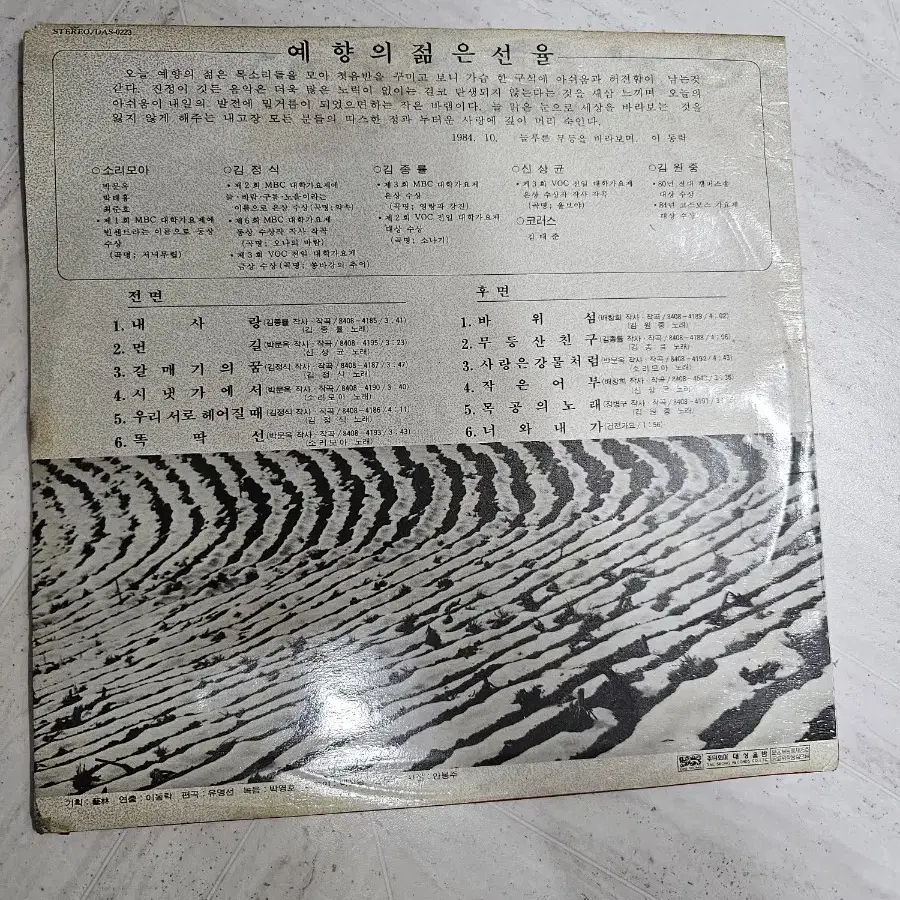 STEREO/DAS-0223
예향의 젊은 선율
오늘 예향의 젊은 목소리들을 모아 첫음반을 꾸미고 보니 가슴 한 구석에 아쉬움과 허전함이 남는것
같다. 진정이 깃든 음악은 더욱 많은 노력이 없이는 결코 탄생되지 않는다는 것을 새삼 느끼며 오늘의
아쉬움이 내일의 발전에 밑거름이 되었으면하는 작은 바램이다. 늘 맑은 눈으로 세상을 바라보는 것을
잃지 않게 해주는 내고장 모든 분들의 따스한 정과 누터운 사랑에 깊이 머리 숙인다.
1984. 10. 늘푸른 무등을 바라보며. 이 동학
○소리모아
박문옥
박태홍
최준호
•제1회 MBC 대학가요제에
빈센트라는 이름으로 동상
수상
(곡명; 저녁무렵)
○김 정 식
•제2회 MBC 대학가요제에
이름으로 은상 수상(곡명;약속)
•제6회 MBC 대학가요제
동상 수상작 작사 작곡
(곡명; 오나의 바람)
•제3회 VOC 전일 대학가요제
금상 수상(곡명; 쫑바강의 추억)
○김 종 률
•제3회 MBC 대학가요제
은상 수상
(곡명; 영랑과 강진)
•제2회 VOC 전일 대학가요제
대상 수상
(곡명; 소나기)
○신 상 균
•제3회 VOC 전일 대학가요제
은상 수상자 작사 작곡
(곡명; 율보야)
○코러스
김 태 준
○김 원 중
•80년 전대 캠퍼스송
대상 수상
•84년 코스모스 가요제
대상 수상
전 면
1. 내 사 랑 (김종률 작사·작곡/8408-4185/3:41)
(김 종 률 노래)
2. 먼 길 (박문옥 작사·작곡/8408-4195/3:23)
(신 상 균 노래)
3. 갈 매 기 의 꿈 (김정식 작사·작곡/8408-4187/3:47)
(김 정 식 노래)
4. 시 냇 가 에 서 (박문옥 작사·작곡/8408-4190/3:40)
(소리모아 노래)
5. 우리 서로 헤어질 때 (김정식 작사·작곡/8408-4186/4:11)
(김 정 식 노래)
6. 똑 딱 선 (박문옥 작사·작곡/8408-4193/3:43)
(소리모아 노래)
후 면
1. 바 위 섬 (배창희 작사·작곡/8408-4189/4:02)
(김 원 중 노래)
2. 무 등 산 친 구 (김종률 작사·작곡/8408-4188/
(김 종 률 노래)
3. 사랑은 강물처럼 (박문옥 작사·작곡/8408-4192/4:43)
(소리모아 노래)
4. 작 은 어 부 (배창희 작사·작곡/
(신 상 균 노래)
5. 목 공 의 노 래 (작사·작곡/8408-4191/
(김 원 중 노래)
6. 너 와 내 가 (건전가요/1:56)
안봉주
기획:藝林 연출:이동학 편곡:유영선 녹음:박영호
주식회사 대성음반